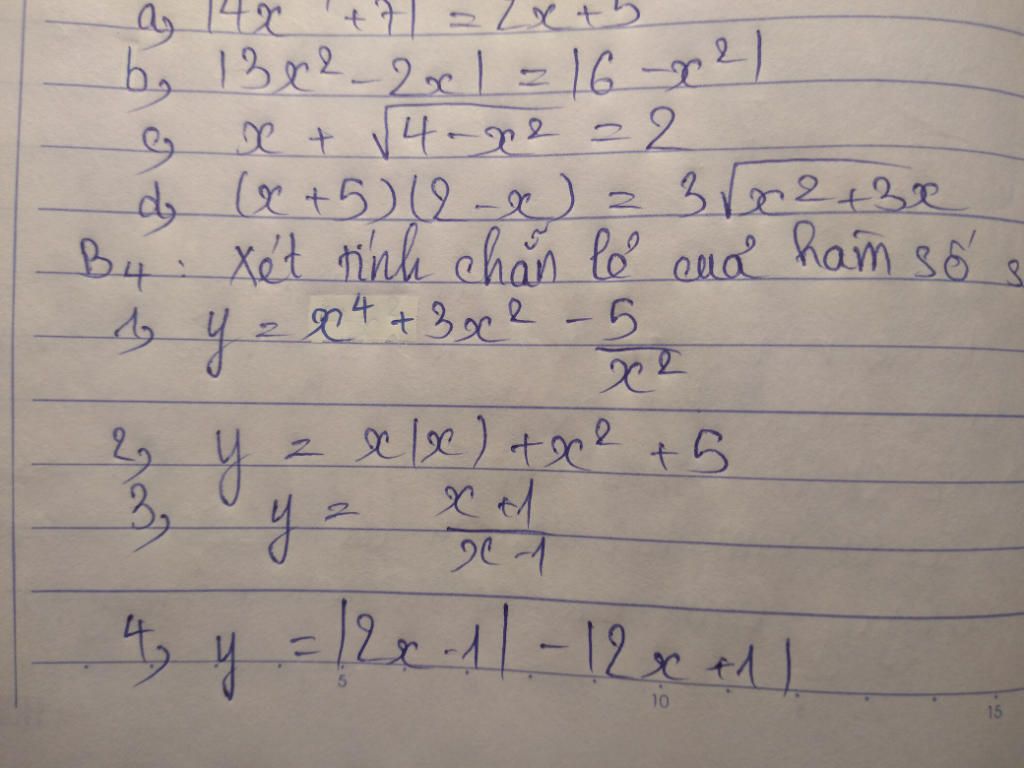 a, |4x + 7| = 2x + 5
b, |3x² - 2x| = |6 - x²|
c, x + √(4 - x²) = 2
d, (x + 5)(2 - x) = 3√(x² + 3x)
B4 : Xét tính chẵn lẻ của hàm số s
1, y = x⁴ + 3x² - 5/x²
2, y = x|x) + x² + 5
3, y = (x + 1)/(x - 1)
4, y = |2x - 1| - |2x + 1|
5 10 15